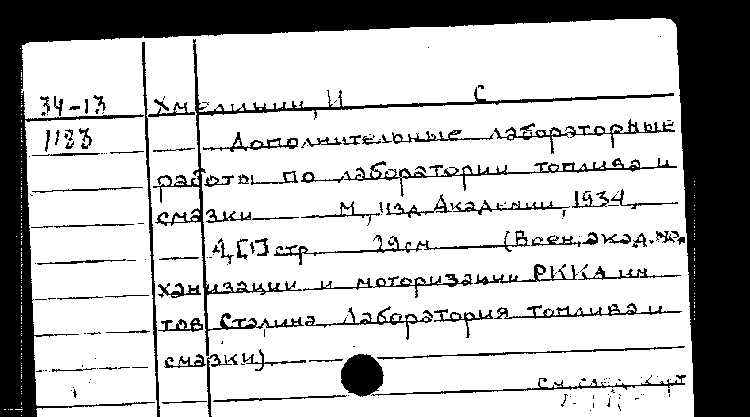 34-13 Хмелинин, И С
1183 Дополнительные лабораторные
работы по лаборатории топлива и
смазки М, изд. Академии, 1934,
4,[1] стр. 29 см (Воен. акад. ме-
ханизации и моторизации РККА им
тов Сталина. Лаборатория топлива и
смазки)
см. след. карт